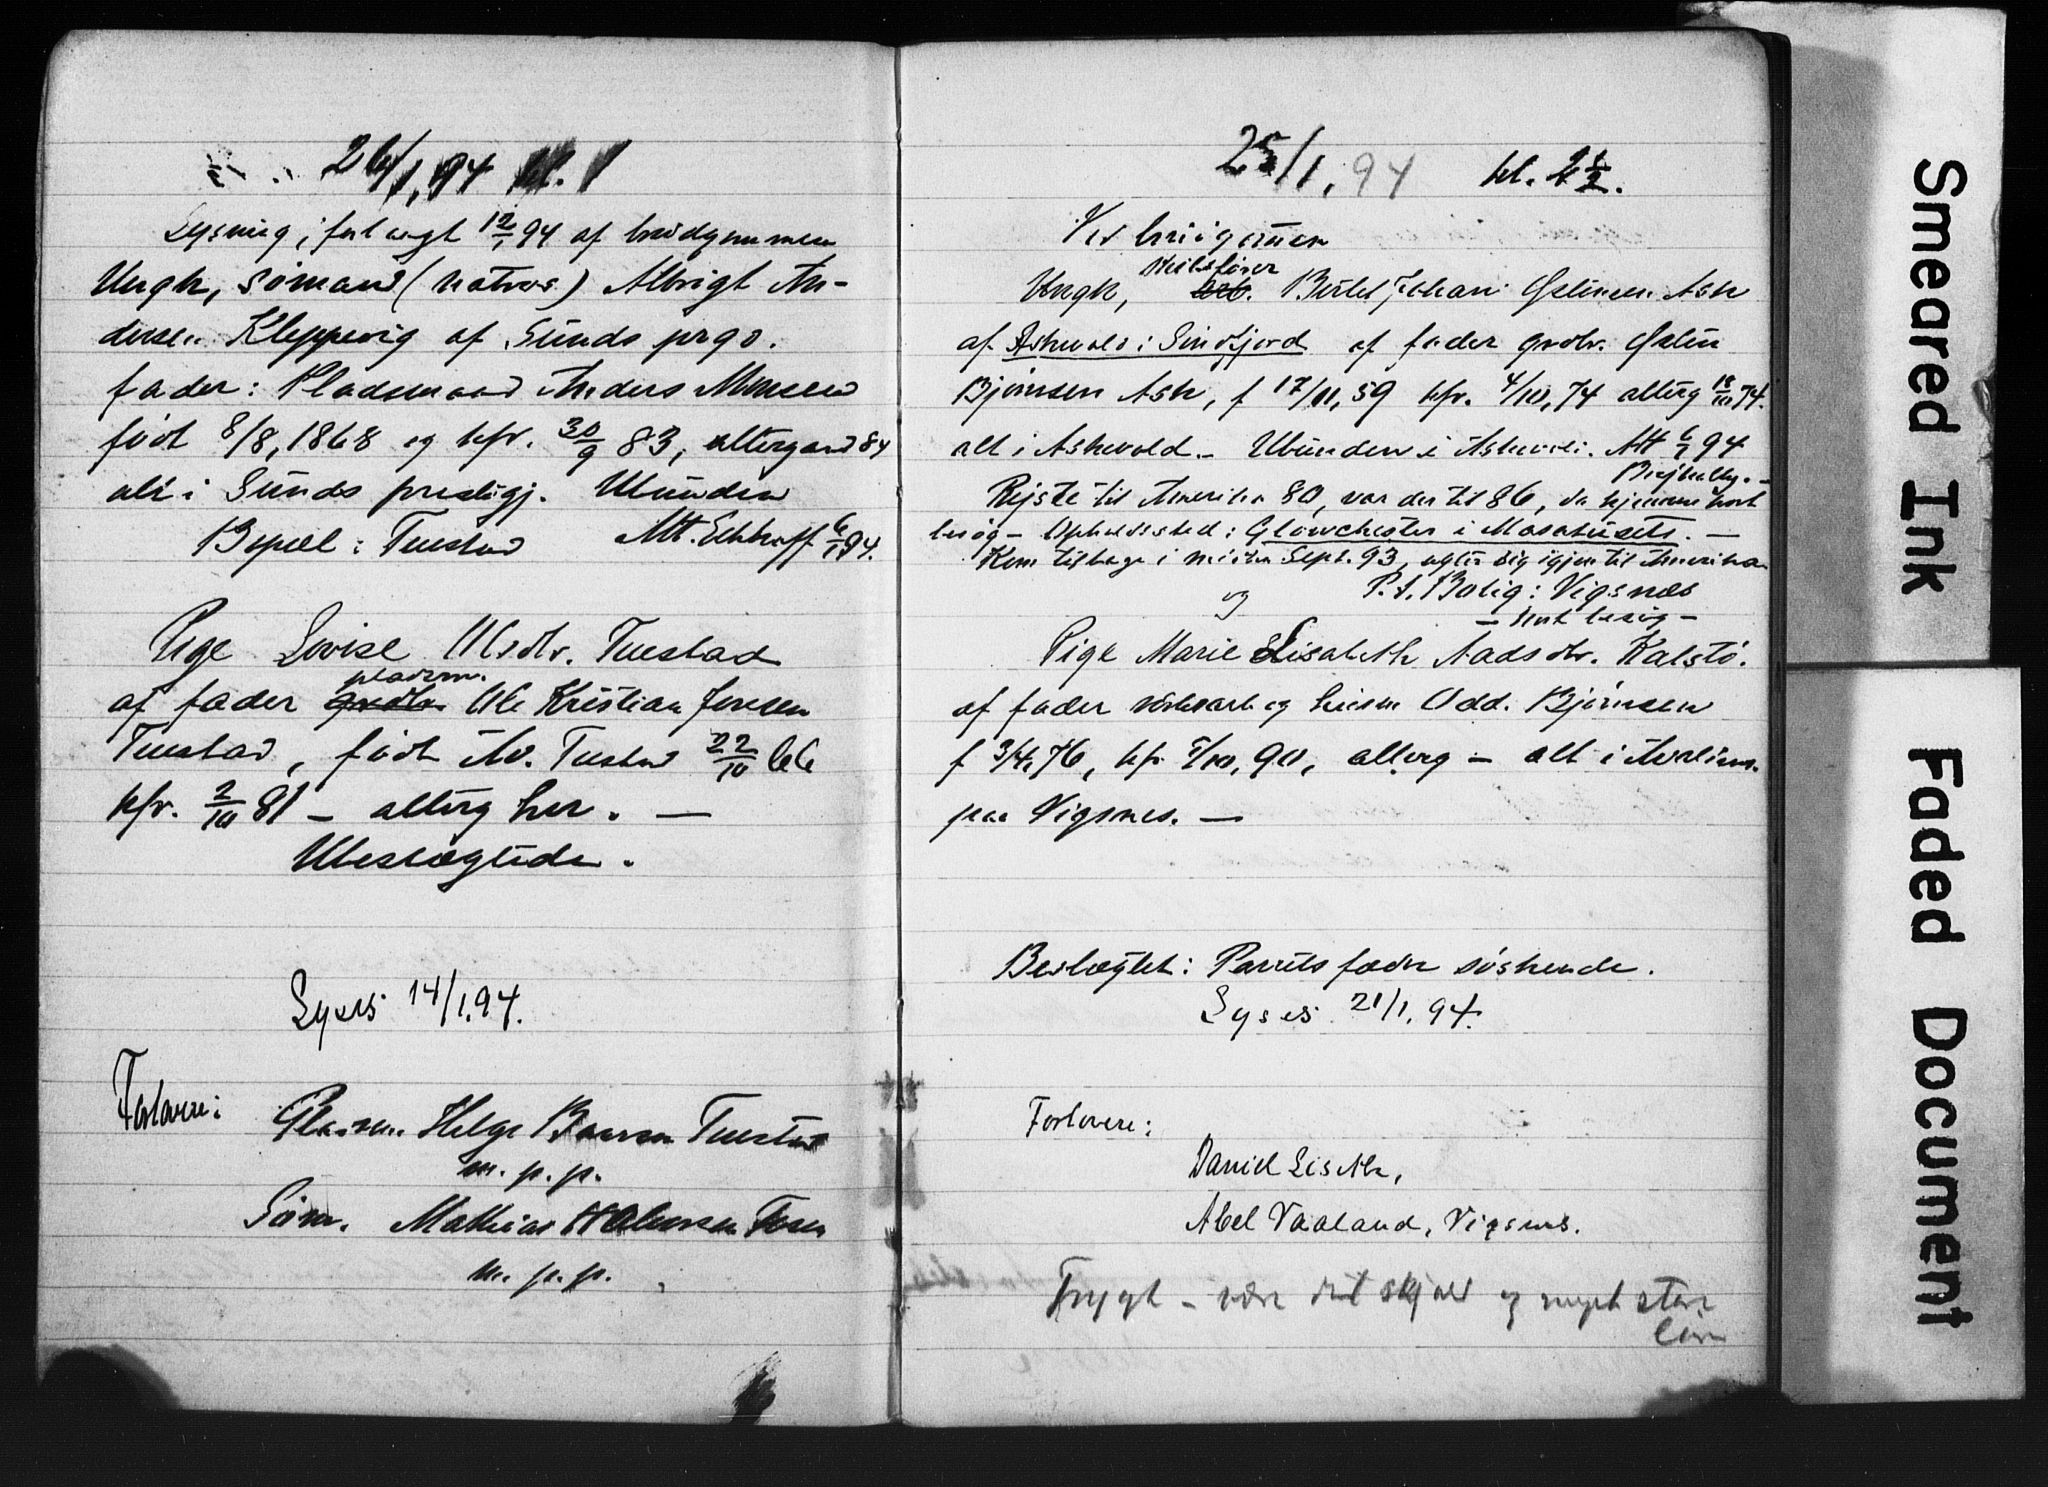 26/1, 94 kl. 1
Lysning forlangt 12/1 94 af brudgommen
Ungk, sømand (matros) Albrigt An-
dersen Kleppevig af Sunds prgd.
fader: Pladsmand Anders Monsen
født 8/8, 1868 og kfr. 30/9 83, altergand 84
alt i Sunds prestegj. Ubunden
Bopæl: Tuestad Att. Eckhoff 6/1 94.
Pige Lovise Olsdtr. Tuestad
pladsm.
af fader grdbr Ole Kristian Jensen
Tuestad, født Av. Tuestad 22/10 66
kfr. 2/10 81 – alterg her. —
Ubeslægtede.
Lyses 14/1, 94.
Forlovere:
Pladsm. Helge Tuestad
m. p. p.
Søm. Mathias
m. p. p.
25/1, 94 kl. 2 1/2.
Ved brudgommen
Ungk, Bertel Johan Østensen Ask
af Askvold i Sundfjord af fader grdbr. Østen
Bjørnsen Ask, f 17/11, 59 kfr. 4/10, 74 alterg 18/10 74.
alt i Askvold. – Ubunden i Askvold. Att 6/1 94
Rejste til Amerika 80, var der til 86, da hjemme kort
besøg – Opholdssted: Glowchester i Masatusets. —
Kom tilbage i midten Sept. 93, agter sig igjen til Amerika
P. t. Bolig: Vigsnæs
og – kort besøg –
Pige Marie Elisabeth Aadsdtr. Kalstø.
af fader og husm Odd. Bjørnsen
f 3/4, 76, kfr 5/10, 90, alterg – alt i Avaldsnes.
paa Vigsnes. —
Beslægtet: Parrets fædre søskende.
Lyses 21/1, 94.
Forlovere:
Daniel Liseth,
Abel Vaaland, Vigsnes.
Trygt – være dit skjold og meget store
løn
Smeared Ink
Faded Document